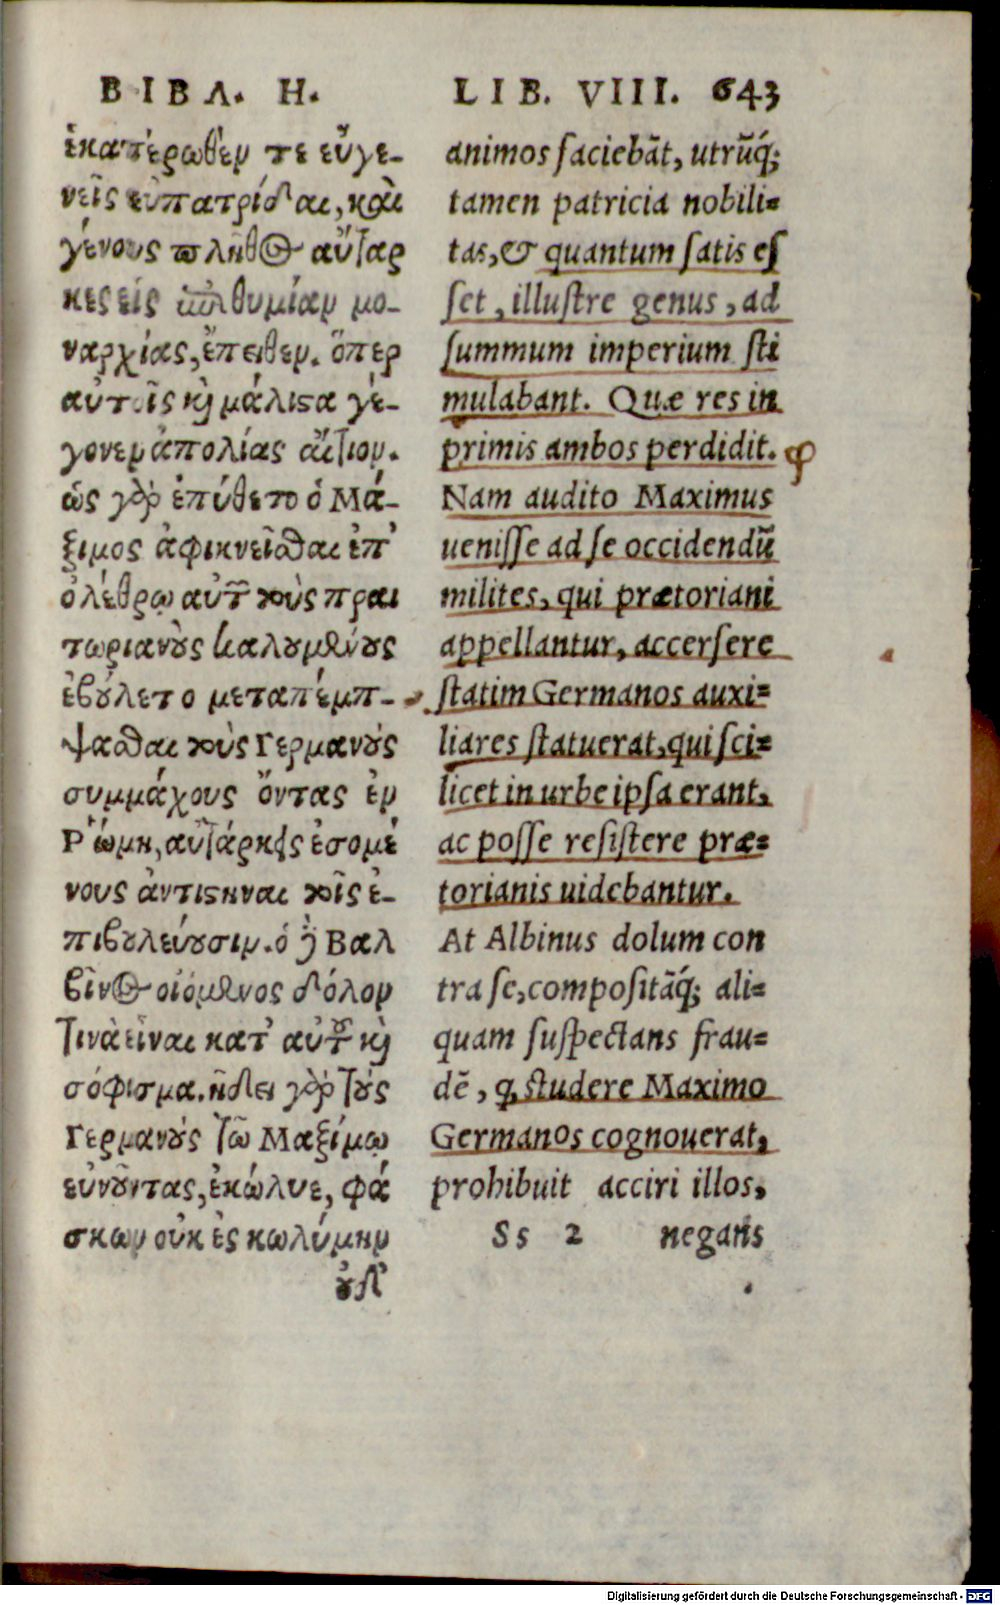 ΒΙΒΛ. Η.
ἑκατέρωθέν τε εὖγε-
νεῖς εὐπατρίδαι, καὶ
γένους πλῆθος αὔταρ
κες εἰς ἐπιθυμίαν μο-
ναρχίας, ἔπειθεν. ὅπερ
αὐτοῖς καὶ μάλιστα γέ-
γονεν ἀπολίας αἴτιον.
ὡς γὰρ ἐπύθετο ὁ Μά-
ξιμος ἀφικνεῖσθαι ἐπ'
ὀλέθρῳ αὐτοῦ τοὺς πραι
τωριανοὺς καλουμένους
ἐβούλετο μεταπέμπ-
ψασθαι τοὺς Γερμανοὺς
συμμάχους ὄντας ἐν
Ῥώμῃ, αὐτάρκεις ἐσομέ
νους ἀντιστῆναι τοῖς ἐ-
πιβουλεύουσιν. ὁ δὲ Βαλ
βῖνος οἰόμενος δόλον
τινὰ εἶναι κατ' αὐτοῦ καὶ
σόφισμα. ᾔδει γὰρ τοὺς
Γερμανοὺς τῷ Μαξίμῳ
εὐνοῦντας, ἐκώλυε, φά
σκων οὐκ ἐς κωλύμην
οὐδ'
LIB. VIII. 643
animos faciebāt, utrūq́;
tamen patricia nobili=
tas, & quantum satis es
set, illustre genus, ad
summum imperium sti
mulabant. Quæ res in
primis ambos perdidit.
Nam audito Maximus
uenisse ad se occidendū
milites, qui prætoriani
appellantur, accersere
statim Germanos auxi=
liares statuerat, qui sci=
licet in urbe ipsa erant,
ac posse resistere præ=
torianis uidebantur.
At Albinus dolum con
tra se, compositāq́; ali=
quam suspectans frau=
dē, q, studere Maximo
Germanos cognouerat,
prohibuit acciri illos,
Ss 2 negans
Digitalisierung gefördert durch die Deutsche Forschungsgemeinschaft - DFG